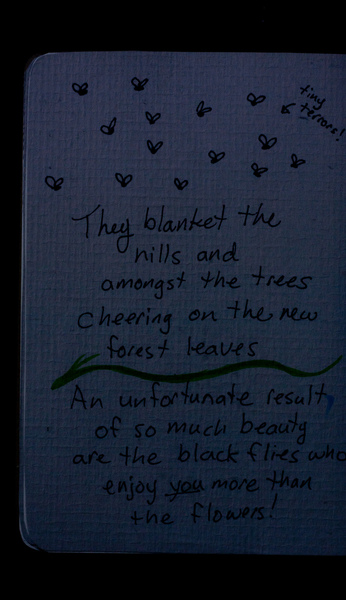 tiny
terrors!
They blanket the
hills and
amongst the trees
cheering on the new
forest leaves
An unfortunate result,
of so much beauty
are the black flies who
enjoy you more than
the flowers!